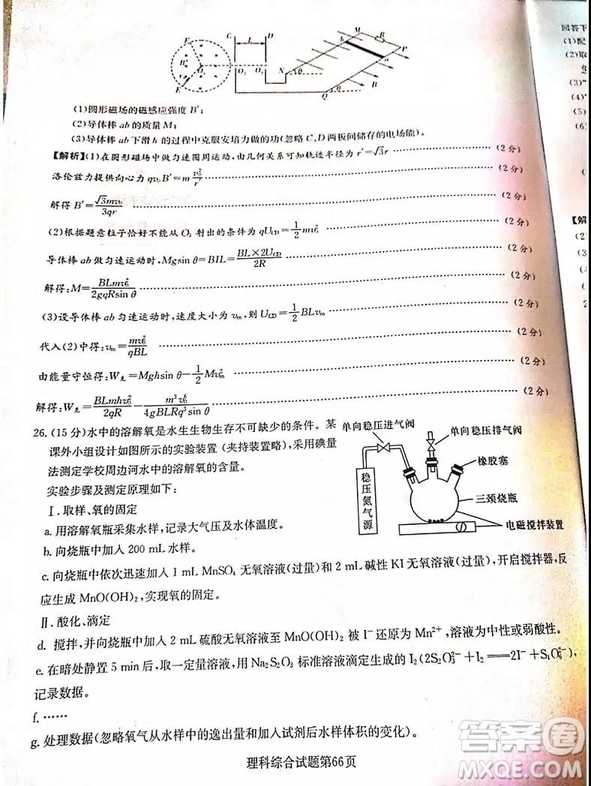 C D
E
F
B′
O₁
L
O₂ O₃
M R
P
b
a
N θ
Q θ
回答下
(1)配
(2)取
(1)圆形磁场的磁感应强度 B′;
(2)导体棒 ab 的质量 M;
(3)导体棒 ab 下滑 h 的过程中克服安培力做的功(忽略 C、D 两板间储存的电场能)。
【解析】(1)在圆形磁场中做匀速圆周运动,由几何关系可知轨迹半径为 r′=√3r ……(2 分)
洛伦兹力提供向心力 qv₀B′=m v₀²/r′ ……(2 分)
解得 B′=√3mv₀/3qr ……(2 分)
(2)根据题意粒子恰好不能从 O₃ 射出的条件为 qU_CD=1/2 mv₀² ……(2 分)
导体棒 ab 做匀速运动时,Mgsin θ=BIL=BL×2U_CD/2R ……(2 分)
解得:M=BLmv₀²/2gqRsin θ ……(2 分)
(3)设导体棒 ab 匀速运动时,速度大小为 vₘ,则 U_CD=1/2 BLvₘ ……(2 分)
代入(2)中得:vₘ=mv₀²/qBL ……(2 分)
由能量守恒得:W克=Mghsin θ−1/2 Mvₘ² ……(2 分)
解得:W克=BLmhv₀²/2qR − m³v₀⁶/4gBLRq³sin θ ……(2 分)
26. (15 分)水中的溶解氧是水生生物生存不可缺少的条件。某
课外小组设计如图所示的实验装置(夹持装置略),采用碘量
法测定学校周边河水中的溶解氧的含量。
单向稳压进气阀
单向稳压排气阀
橡胶塞
三颈烧瓶
电磁搅拌装置
稳压氮气源
实验步骤及测定原理如下:
Ⅰ.取样、氧的固定
a. 用溶解氧瓶采集水样,记录大气压及水体温度。
b. 向烧瓶中加入 200 mL 水样。
c. 向烧瓶中依次迅速加入 1 mL MnSO₄ 无氧溶液(过量)和 2 mL 碱性 KI 无氧溶液(过量),开启搅拌器,反
应生成 MnO(OH)₂,实现氧的固定。
Ⅱ.酸化、滴定
d. 搅拌,并向烧瓶中加入 2 mL 硫酸无氧溶液至 MnO(OH)₂ 被 I⁻ 还原为 Mn²⁺,溶液为中性或弱酸性。
e. 在暗处静置 5 min 后,取一定量溶液,用 Na₂S₂O₃ 标准溶液滴定生成的 I₂(2S₂O₃²⁻+I₂══2I⁻+S₄O₆²⁻),
记录数据。
f. ……
g. 处理数据(忽略氧气从水样中的逸出量和加入试剂后水样体积的变化)。
理科综合试题第66页
答案圈
MXQE.COM